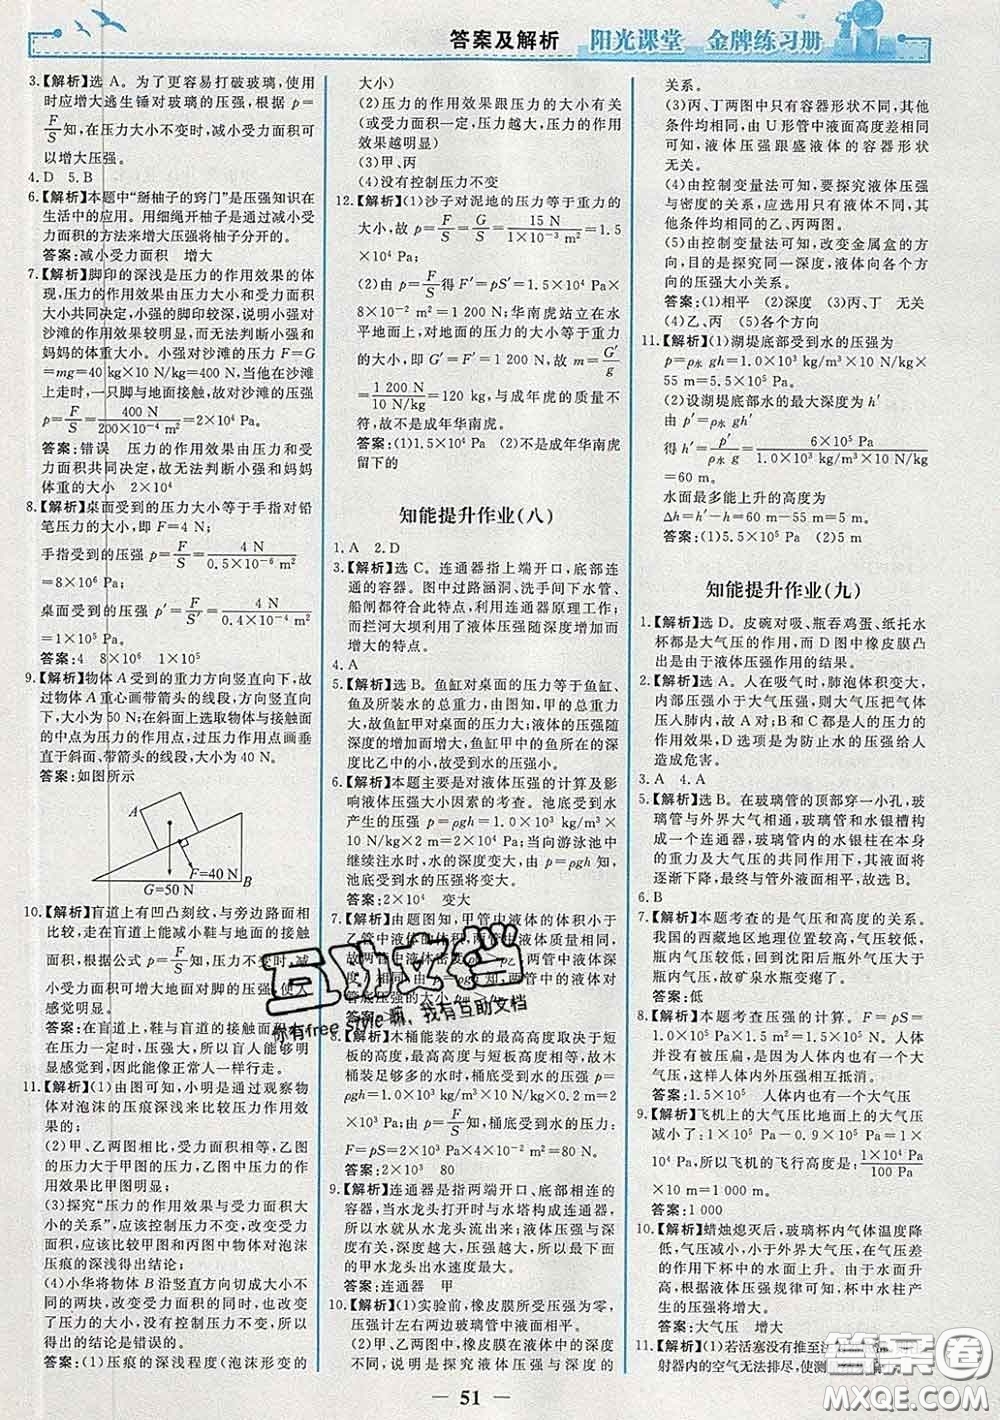 答案及解析 阳光课堂 金牌练习册
3.【解析】选 A。为了更容易打破玻璃,使用
时应增大逃生锤对玻璃的压强,根据 p=
F/S知,在压力大小不变时,减小受力面积可
以增大压强。
4. D 5. B
6.【解析】本题中“掰柚子的窍门”是压强知识在
生活中的应用。用细绳开柚子是通过减小受
力面积的方法来增大压强将柚子分开的。
答案:减小受力面积 增大
7.【解析】脚印的深浅是压力的作用效果的体
现,压力的作用效果由压力大小和受力面积
大小共同决定,小强的脚印较深,说明小强对
沙滩的作用效果较明显,无法判断小强和
妈妈的体重大小。小强对沙滩的压力 F=G
=mg=40 kg×10 N/kg=400 N。当他在沙滩
上走时,一只脚与地面接触,故对沙滩的压强
p=F/S=400 N/200×10⁻⁴ m²=2×10⁴ Pa。
答案:错误 压力的作用效果由压力和受
力面积共同决定,故无法判断小强和妈妈
体重的大小 2×10⁴
8.【解析】桌面受到的压力大小等于手指对铅
笔压力的大小,即 F=4 N;
手指受到的压强 p=F/S=4 N/0.5×10⁻⁶ m²
=8×10⁶ Pa;
桌面受到的压强 p′=F/S′=4 N/0.4×10⁻⁴ m²
=1×10⁵ Pa。
答案:4 8×10⁶ 1×10⁵
9.【解析】物体 A 受到的重力方向竖直向下,故
过物体 A 重心画带箭头的线段,方向竖直向
下,大小为 50 N;在斜面上选取物体与接触面
的中点为压力的作用点,过压力作用点作垂
直于斜面、带箭头的线段,大小为 40 N。
答案:如图所示
A
F=40 N
G=50 N
B
10.【解析】盲道上有凹凸刻纹,与旁边路面相
比较,走在盲道上能减小鞋与地面的接触
面积,根据公式 p=F/S知,压力不变时,减
小受力面积可增大地面对脚的压强,使人
感觉明显。
答案:在盲道上,鞋与盲道的接触面积小,
在压力一定时,压强大,所以盲人能够明显
感觉到,因此能像正常人一样行走。
11.【解析】(1)由图可知,小明是通过观察物
体对泡沫的压痕深浅来比较压力作用效
果的;
(2)甲、乙两图相比,受力面积相等,乙图的
压力大于甲图的压力,乙图中压力的作用
效果比甲图明显;
(3)探究“压力的作用效果与受力面积大
小的关系”,应控制压力不变,改变受力面
积,因此应比较甲图和丙图中物体对泡沫
压痕的深浅得出结论;
(4)小华将物体 B 沿竖直方向切成大小不
同的两块,改变了受力面积的同时,压力
的大小发生了变化,没有控制压力不变,所以
得出的结论是错误的。
答案:(1)压痕的深浅程度(泡沫形变的
大小)
(2)压力的作用效果跟压力的大小有关
(或受力面积一定,压力越大,压力的作用
效果越明显)
(3)甲、丙
(4)没有控制压力不变
12.【解析】(1)沙子对泥地的压力等于重力的
大小,故 p=F/S=G/S=15 N/1×10⁻³ m²=1.5
×10⁴ Pa;
(2)由 p=F/S得 F′=pS′=1.5×10⁴ Pa×
8×10⁻² m²=1 200 N;华南虎站立在水
平地面上,对地面的压力的大小等于重力
的大小,即 G′=F′=1 200 N,故 m=G′/g
=1 200 N/10 N/kg=120 kg,与成年虎的质量不
符,故不是成年华南虎。
答案:(1)1.5×10⁴ Pa (2)不是成年华南虎
留下的
知能提升作业(八)
1. A 2. D
3.【解析】选 C。连通器指上端开口,底部连
通的容器。图中过路涵洞、洗手间下水管、
船闸都符合此特点,利用连通器原理工作;
而拦河大坝利用了液体压强随深度增加而
增大的特点。
4. A
5.【解析】选 B。鱼缸对桌面的压力等于鱼缸、
鱼及所装水的总重力,由图知,甲的总重力
大,故鱼缸甲对桌面的压力大;液体的压强随
深度的增大而增大,鱼缸甲中的鱼所在的深度
比乙中的小,故所受水的压强小。
6.【解析】本题主要是对液体压强的计算及影
响液体压强大小因素的考查。池底受到水
产生的压强 p=ρgh=1.0×10³ kg/m³×
10 N/kg×2 m=2×10⁴ Pa;当向游泳池中
继续注水时,水的深度变大,由 p=ρgh 知,
池底受到的压强将变大。
答案:2×10⁴ 变大
7.【解析】由题图知,甲管中液体的体积小于
8.【解析】本桶能装的水的最高高度取决于短
板的高度,最高高度与短板高度相等,故木
桶装足够多的水时,水对桶底的压强 p=
ρgh=1.0×10³ kg/m³×10 N/kg×0.2 m=2
×10³ Pa;由 p=F/S知,水对桶底的压力为:
F=pS=2×10³ Pa×4×10⁻² m²=80 N。
答案:2×10³ 80
9.【解析】连通器是指两端开口、底部相连的
容器,当水龙头打开时与水塔构成连通器,
所以水就从水龙头流出来;液体压强与深
度有关,深度越大,压强越大,所以打开甲
水龙头出水速度最大。
答案:连通器 甲
10.【解析】(1)实验前,橡皮膜所受压强为零,
压强计左右两边玻璃管中液面相平。
(2)甲、乙两图中,橡皮膜在液体中的深度
不同,说明探究的是液体压强与深度的
关系。
(3)丙、丁两图中只有容器形状不同,其他
条件均相同,由 U 形管中液面高度差相同
可知,液体压强跟盛液体的容器形状
无关。
(4)由控制变量法可知,要探究液体压强
与密度的关系,应选用只有液体密度不
同,而其他条件均相同的乙、丙两图。
(5)由控制变量法可知,改变金属盒的方
向,目的是探究同一深度,液体向各个方
向的压强大小关系。
答案:(1)相平 (2)深度 (3)丙、丁 无关
(4)乙、丙 (5)各个方向
11.【解析】(1)湖堤底部受到水的压强为
p=ρ水gh=1.0×10³ kg/m³×10 N/kg×
55 m=5.5×10⁵ Pa。
(2)设湖堤底部水的最大深度为 h′
由 p′=ρ水gh′
得 h′=p′/ρ水g=6×10⁵ Pa/1.0×10³ kg/m³×10 N/kg
=60 m,
水面最多能上升的高度为
Δh=h′-h=60 m-55 m=5 m。
答案:(1)5.5×10⁵ Pa (2)5 m
知能提升作业(九)
1.【解析】选 D。皮碗对吸、瓶吞鸡蛋、纸托水
杯都是大气压的作用,而 D 图中橡皮膜凸
出是由于液体压强作用的结果。
2.【解析】选 A。人在吸气时,肺泡体积变大,
内部压强小于大气压强,则大气压把气体
压入肺内,故 A 对;B 和 C 都是人的压力的
作用效果,D 选项是为防止水的压强给人
造成危害。
3. A 4. A
5.【解析】选 B。在玻璃管的顶部穿一小孔,玻
璃管与外界大气相通,玻璃管和水银槽构
成一个连通器,玻璃管中的水银柱在本身
的重力及大气压的共同作用下,液面会迅
速降低,最终与管外液面相平。
6. B
7.【解析】本题考查的是气压和高度的关系。
我国的西藏地区地理位置较高,大气压较
低,瓶内气压较低,回到沈阳后瓶外气压大于
瓶内气压,故矿泉水瓶变瘪了。
答案:低
8.【解析】本题考查压强的计算。F=pS=
1.0×10⁵ Pa×1.5 m²=1.5×10⁵ N;人体
并没有被压扁,是因为人体内也有大气压,
内外压强相等,相互抵消。
答案:1.5×10⁵ 人体内也有大气压
9.【解析】飞机上的大气压比地面上的大气压
减小了:1×10⁴ Pa/100 Pa
×10 m=1 000 m。
答案:1 000
10.【解析】蜡烛熄灭后,玻璃杯内气体温度降
杯中的水面上升。由水面升高,
根据液体压强规律可知,杯中水柱产
生的压强增大。
答案:大气压 增大
11.【解析】(1)若活塞没有推至
射器内的空气无法排尽,使测
51
互助文档
你有free style嘛,我有互助文档
答案圈
MXQE.COM